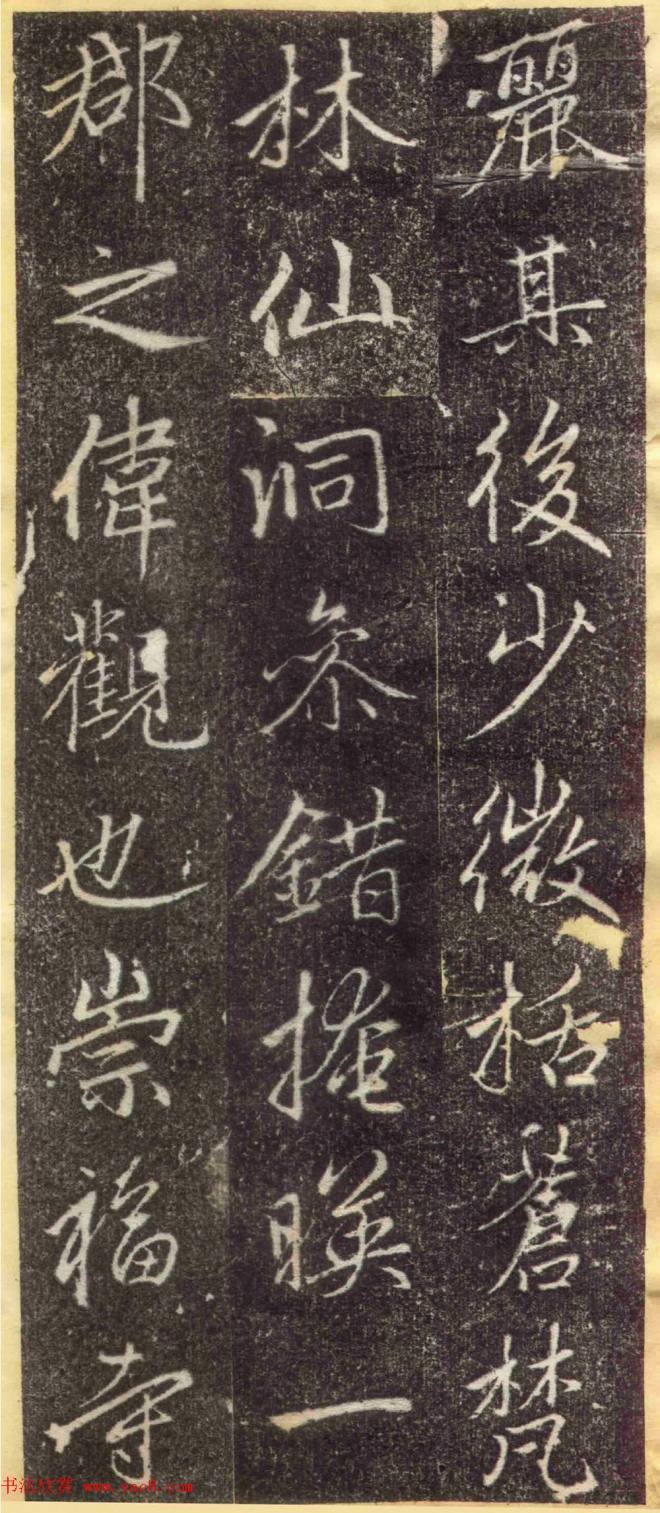 麗其後少微括蒼梵
林仙洞叅錯掩暎一
郡之偉觀也崇福寺
书法欣赏 www.yac8.com